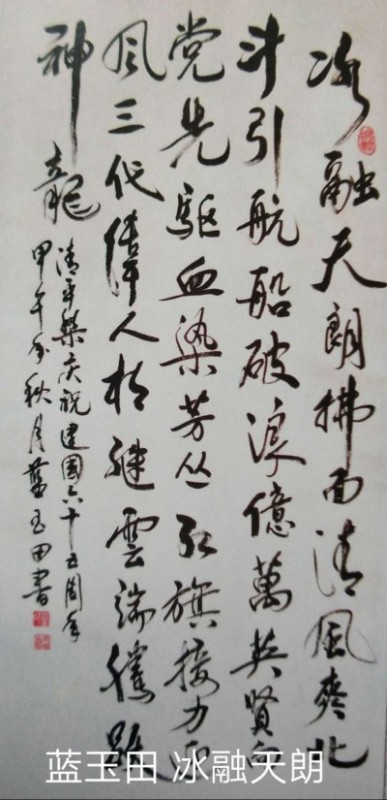 冰融天朗拂面清風爽北
斗引航船破浪億萬英賢向
党先驱血染芳丛红旗接力东
风三代偉人相继雲端騰跃
神龍
清平樂庆祝建国六十五周年
甲午年秋月藍玉田書
蓝玉田 冰融天朗